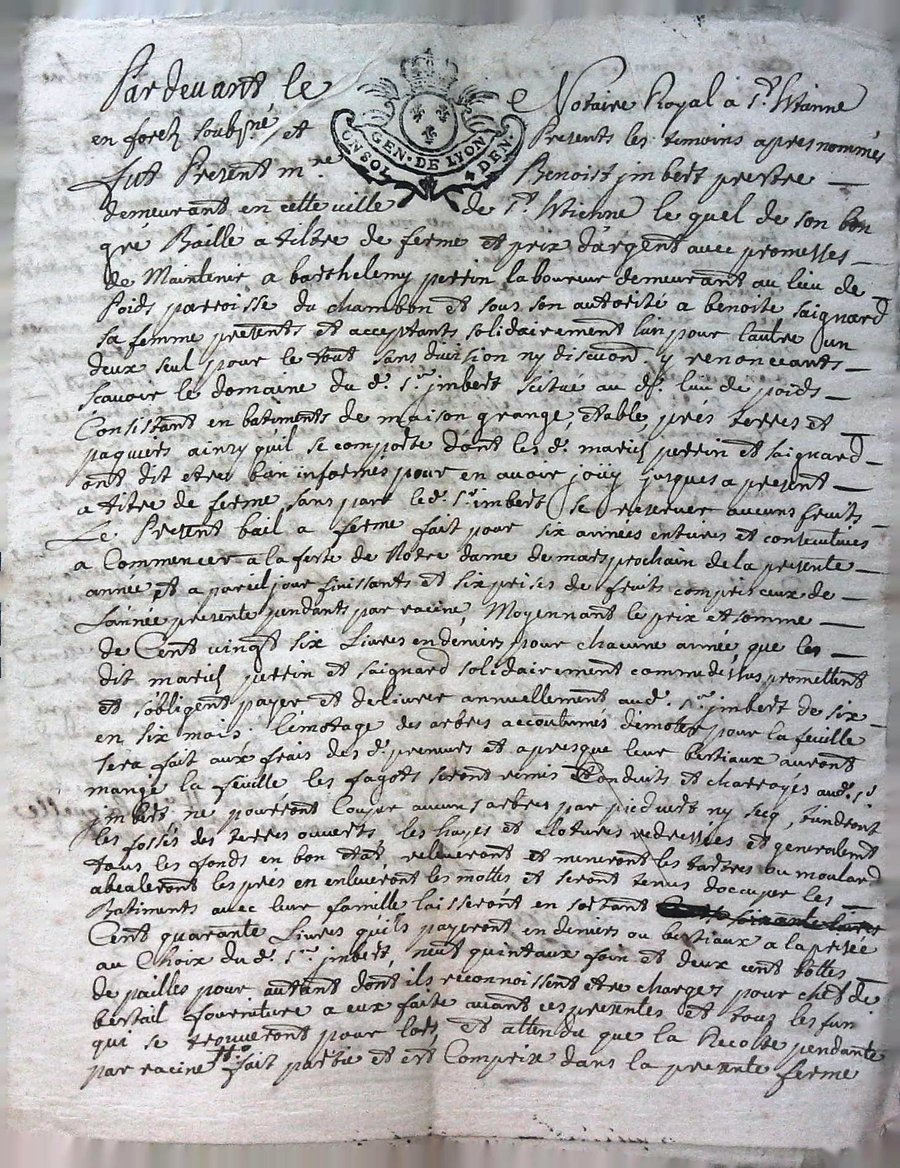 Pardevant le Notaire Royal à St. Etienne
GEN. DE LYON
CONSOL DEN
en forez soubsné et Presents les temoins apres nommés
fut Present mre. Benoist jmbert prestre
demeurant en cette ville de St. Etienne le quel de son bon
gré Baille a tiltre de ferme et prix d'argent avec promesses
de Maintenir a barthelemy perrin laboureur demeurant au lieu de
Poids parroisse du chambon et sous son autorité a benoite saignard
sa femme présents et acceptants solidairement l'un pour l'autre un
deux seul pour le tout sans division ny discution y renonceants
scavoir le domaine du d. sr. jmbert scitué au dt. lieu de poids
Consistant en batiments de maison grange, étable, prés terres et
paquiers ainsy quil se comporte dont les d. mariés perrin et saignard
ont dit etre bien informes pour en avoir joüy jusques a present
a titre de ferme sans par led. sr. jmbert se reserver aucuns fruits
Le Present bail a ferme fait pour six années entieres et consecutives
a Commencer a la feste de Notre dame de mars prochain de la presente
année et a pareil jour finissants et six prises de fruits compris ceux de
L'année presente pendants par racine, Moyennant le prix et somme
de Cent vingt six Livres en deniers pour chacune année, que les
dit mariés perrin et saignard solidairement comme dessus promettent
et s'obligent payer et delivrer annuellement aud. sr. jmbert de six
en six mois. l'emotage des arbres accoutumés démoter pour la feuille
sera fait aux frais des d. preneurs et apres que leur bestiaux auront
mangé la feüille les fagots seront remis Conduits et charroyés aud. sr.
jmbert, ne pourront Couper aucuns arbres par pied vert ny secq, tiendront
les fossés des terres ouverts les hayes et clotures redressées et generalemt
tous les fonds en bon état, releveront et meneront les tartres ou moulard
abealeront les prés en enleveront les mottes et seront tenus doccuper les
Batiments avec leur famille laisseront en sortant
Cent quarante Livres qu'ils payeront en deniers ou bestiaux a la prisée
au Choix du d. sr. jmbert, neuf quintaux foin et deux cent bottes
de pailles pour autant dont ils reconnoissent etre chargés pour chef de
bestail fourniture a eux faite avant ces presentes et tous les fun
qui se trouveront pour lors, et attendu que la Recolte pendante
par racine fait partie et est Comprix dans la presente ferme